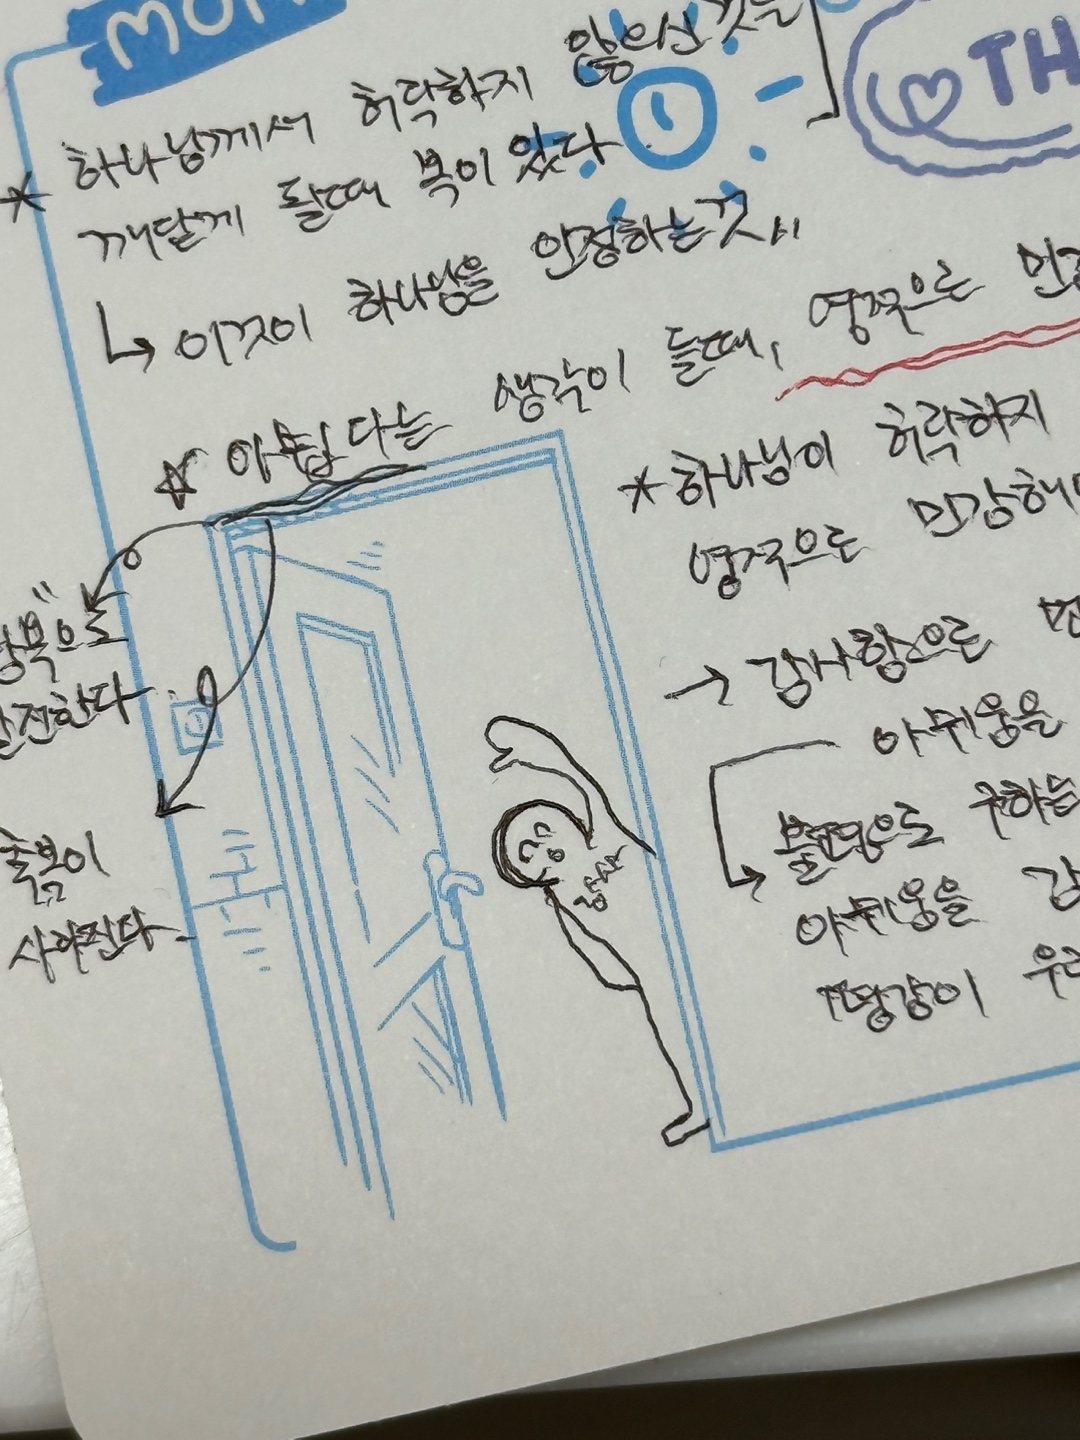 MON
TH
* 하나님께서 허락하지 않으신 것을
깨닫게 될때 복이 있다
↳ 이것이 하나님을 인정하는것"
☆ 아쉽다는 생각이 들때, 영적으로 민감
* 하나님이 허락하지
영적으로 민감해
→ 감사함으로
아쉬움을
불평으로 구하는
아쉬움을
땅값이 우리
축복이
사라진다